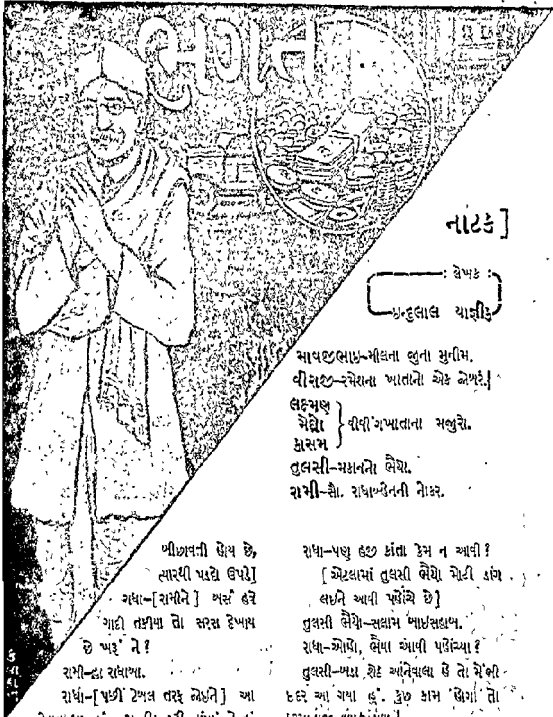 ભગત
નાટક]
: લેખક :
ઇન્દુલાલ યાજ્ઞીક
માવજીભાઇ–મીલના જુના મુનીમ.
વીરાજી–રમેશના ખાતાનો એક જોબર.
લક્ષ્મણ
મેઘો
કાસમ
વીવીંગખાતાના મજુરો.
તુલસી–મકાનનો ભૈયો.
રામી–સૌ. રાધાબ્હેનની નોકર.
બીછાવતી હોય છે,
ત્યારથી પડદો ઉપડે]
રાધા–[રામીને] અલી હવે
ગાદી તકીયા તો સરસ દેખાય
છે ખરૂં ને?
રામી–હા રાધાબા.
રાધા–[પછી ટેબલ તરફ જોઇને] આ
રાધા–પણ હજી કાંતા કેમ ન આવી?
[એટલામાં તુલસી ભૈયો મોટી ડાંગ
લઇને આવી પહોંચે છે]
તુલસી ભૈયો–સલામ બાઇસાહબ.
રાધા–ઓહો, ભૈયા આવી પહોંચ્યા?
તુલસી–બડા શેઠ આનેવાલા હે તો મેં બી
ઇદર આ ગયા હું. કુછ કામ હોગા તો